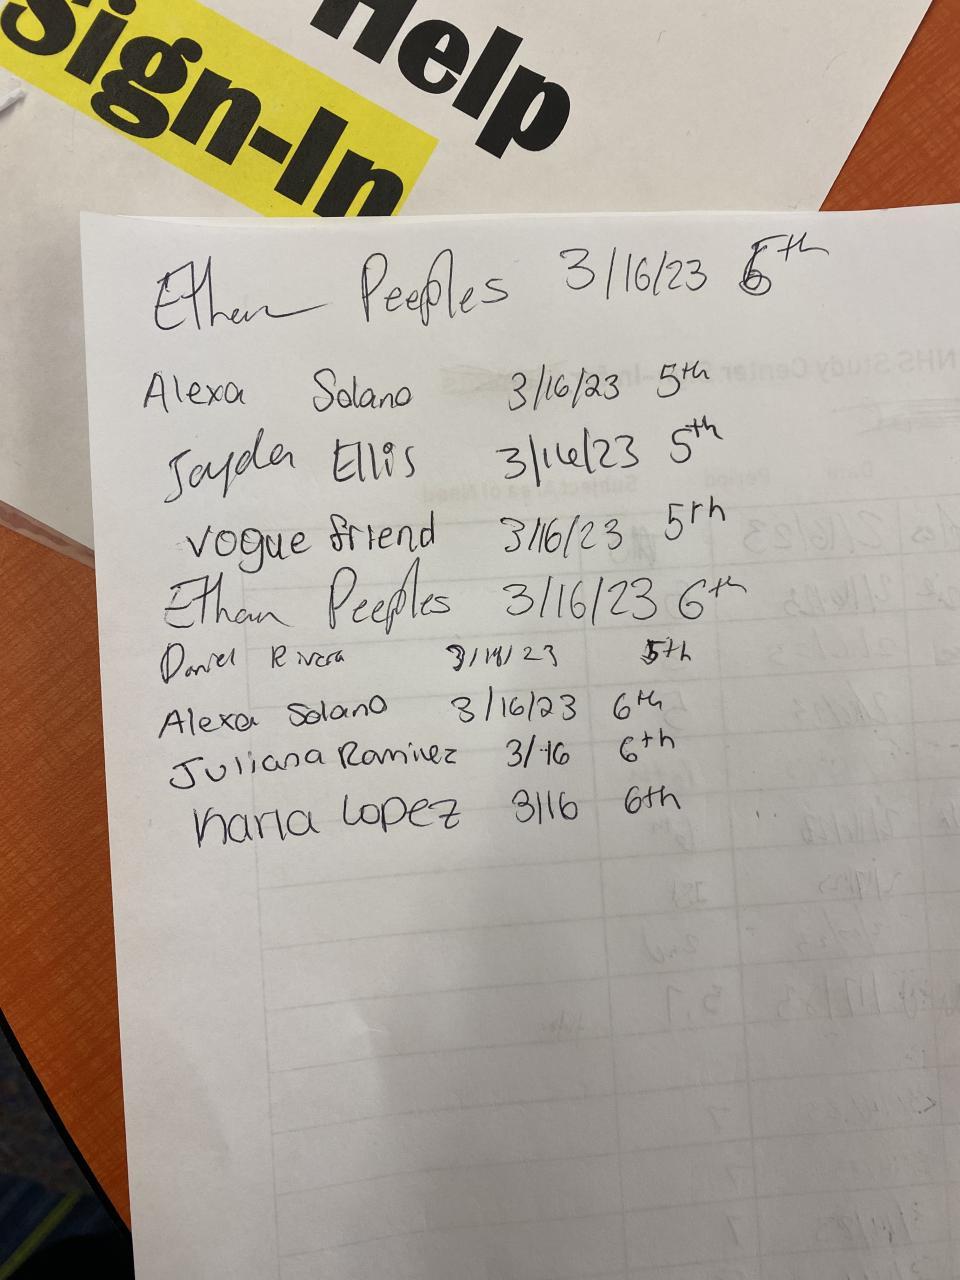 Help
Sign-In
Ethan Peeples 3/16/23 5th
Alexa Solano 3/16/23 5th
Jayda Ellis 3/16/23 5th
vogue friend 3/16/23 5th
Ethan Peeples 3/16/23 6th
Daniel Rivera 23 5th
Alexa Solano 3/16/23 6th
Juliana Ramirez 3/16 6th
Karla Lopez 3/16 6th
NHS Study Center
Date Period Subject Area of Need